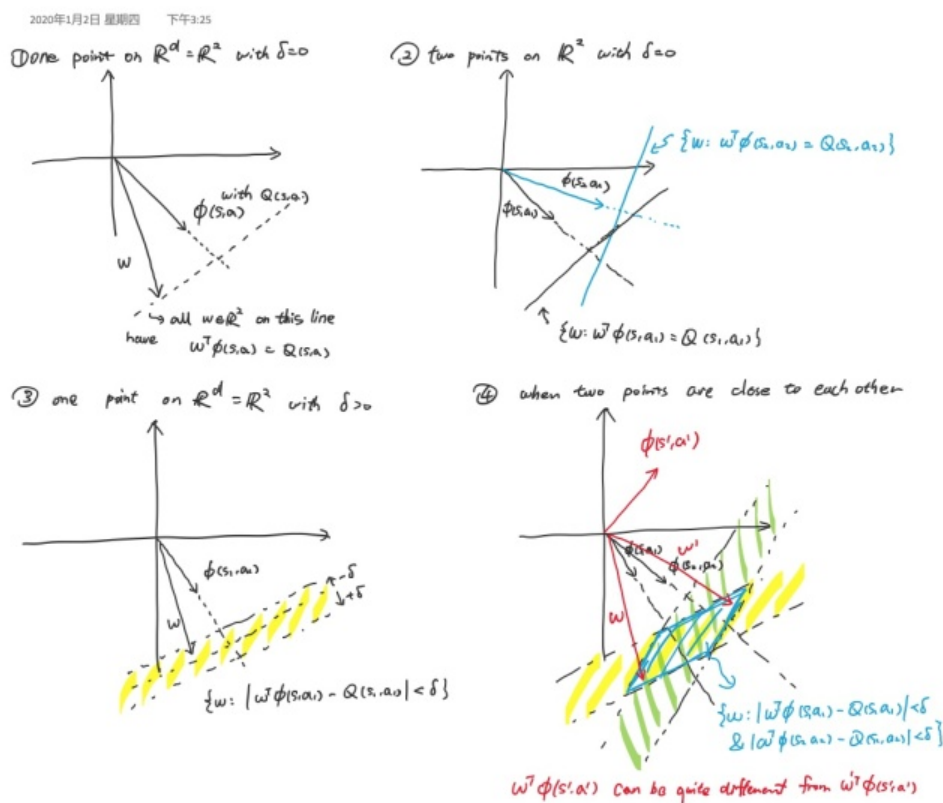 2020年1月2日 星期四 下午3:25
① one point on ℝᵈ = ℝ² with δ=0
with Q(s,a)
ϕ(s,a)
w
↳ all w∈ℝ² on this line
have wᵀϕ(s,a) = Q(s,a)
② two points on ℝ² with δ=0
{w: wᵀϕ(s₂,a₂) = Q(s₂,a₂)}
ϕ(s₂,a₂)
ϕ(s₁,a₁)
{w: wᵀϕ(s₁,a₁) = Q(s₁,a₁)}
③ one point on ℝᵈ = ℝ² with δ>0
ϕ(s₁,a₂)
-δ
+δ
w
{w: |wᵀϕ(s₁,a₁) - Q(s₁,a₁)| < δ}
④ when two points are close to each other
ϕ(s',a')
ϕ(s₁,a₁)
w'
ϕ(s₂,a₂)
w
{w: |wᵀϕ(s₁,a₁) - Q(s₁,a₁)| < δ
& |wᵀϕ(s₂,a₂) - Q(s₂,a₂)| < δ}
wᵀϕ(s',a') can be quite different from w'ᵀϕ(s',a')